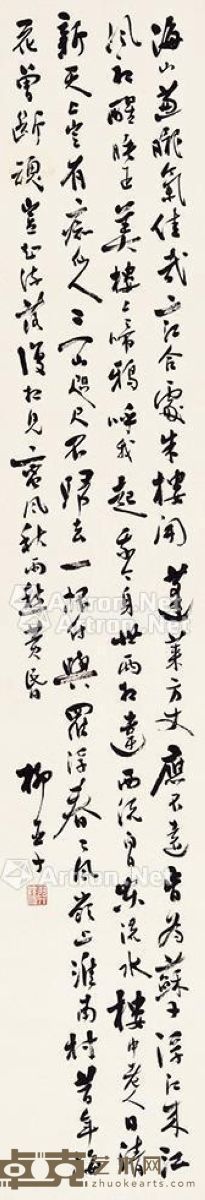 海山蔥曨氣佳哉二江合處朱樓開蓬萊方丈應不遠肯為蘇子浮江来江
風初醒睡正美樓上啼鴉呼我起我今身世兩相違西流白日東流水樓中老人日清
新天上豈有癡仙人三山咫尺不歸去一杯付與羅浮春春風嶺上淮南村昔年梅
花曾斷魂豈知流落復相見蠻風秋雨愁黄昏
柳亞子
Artron.Net
Artron.Net